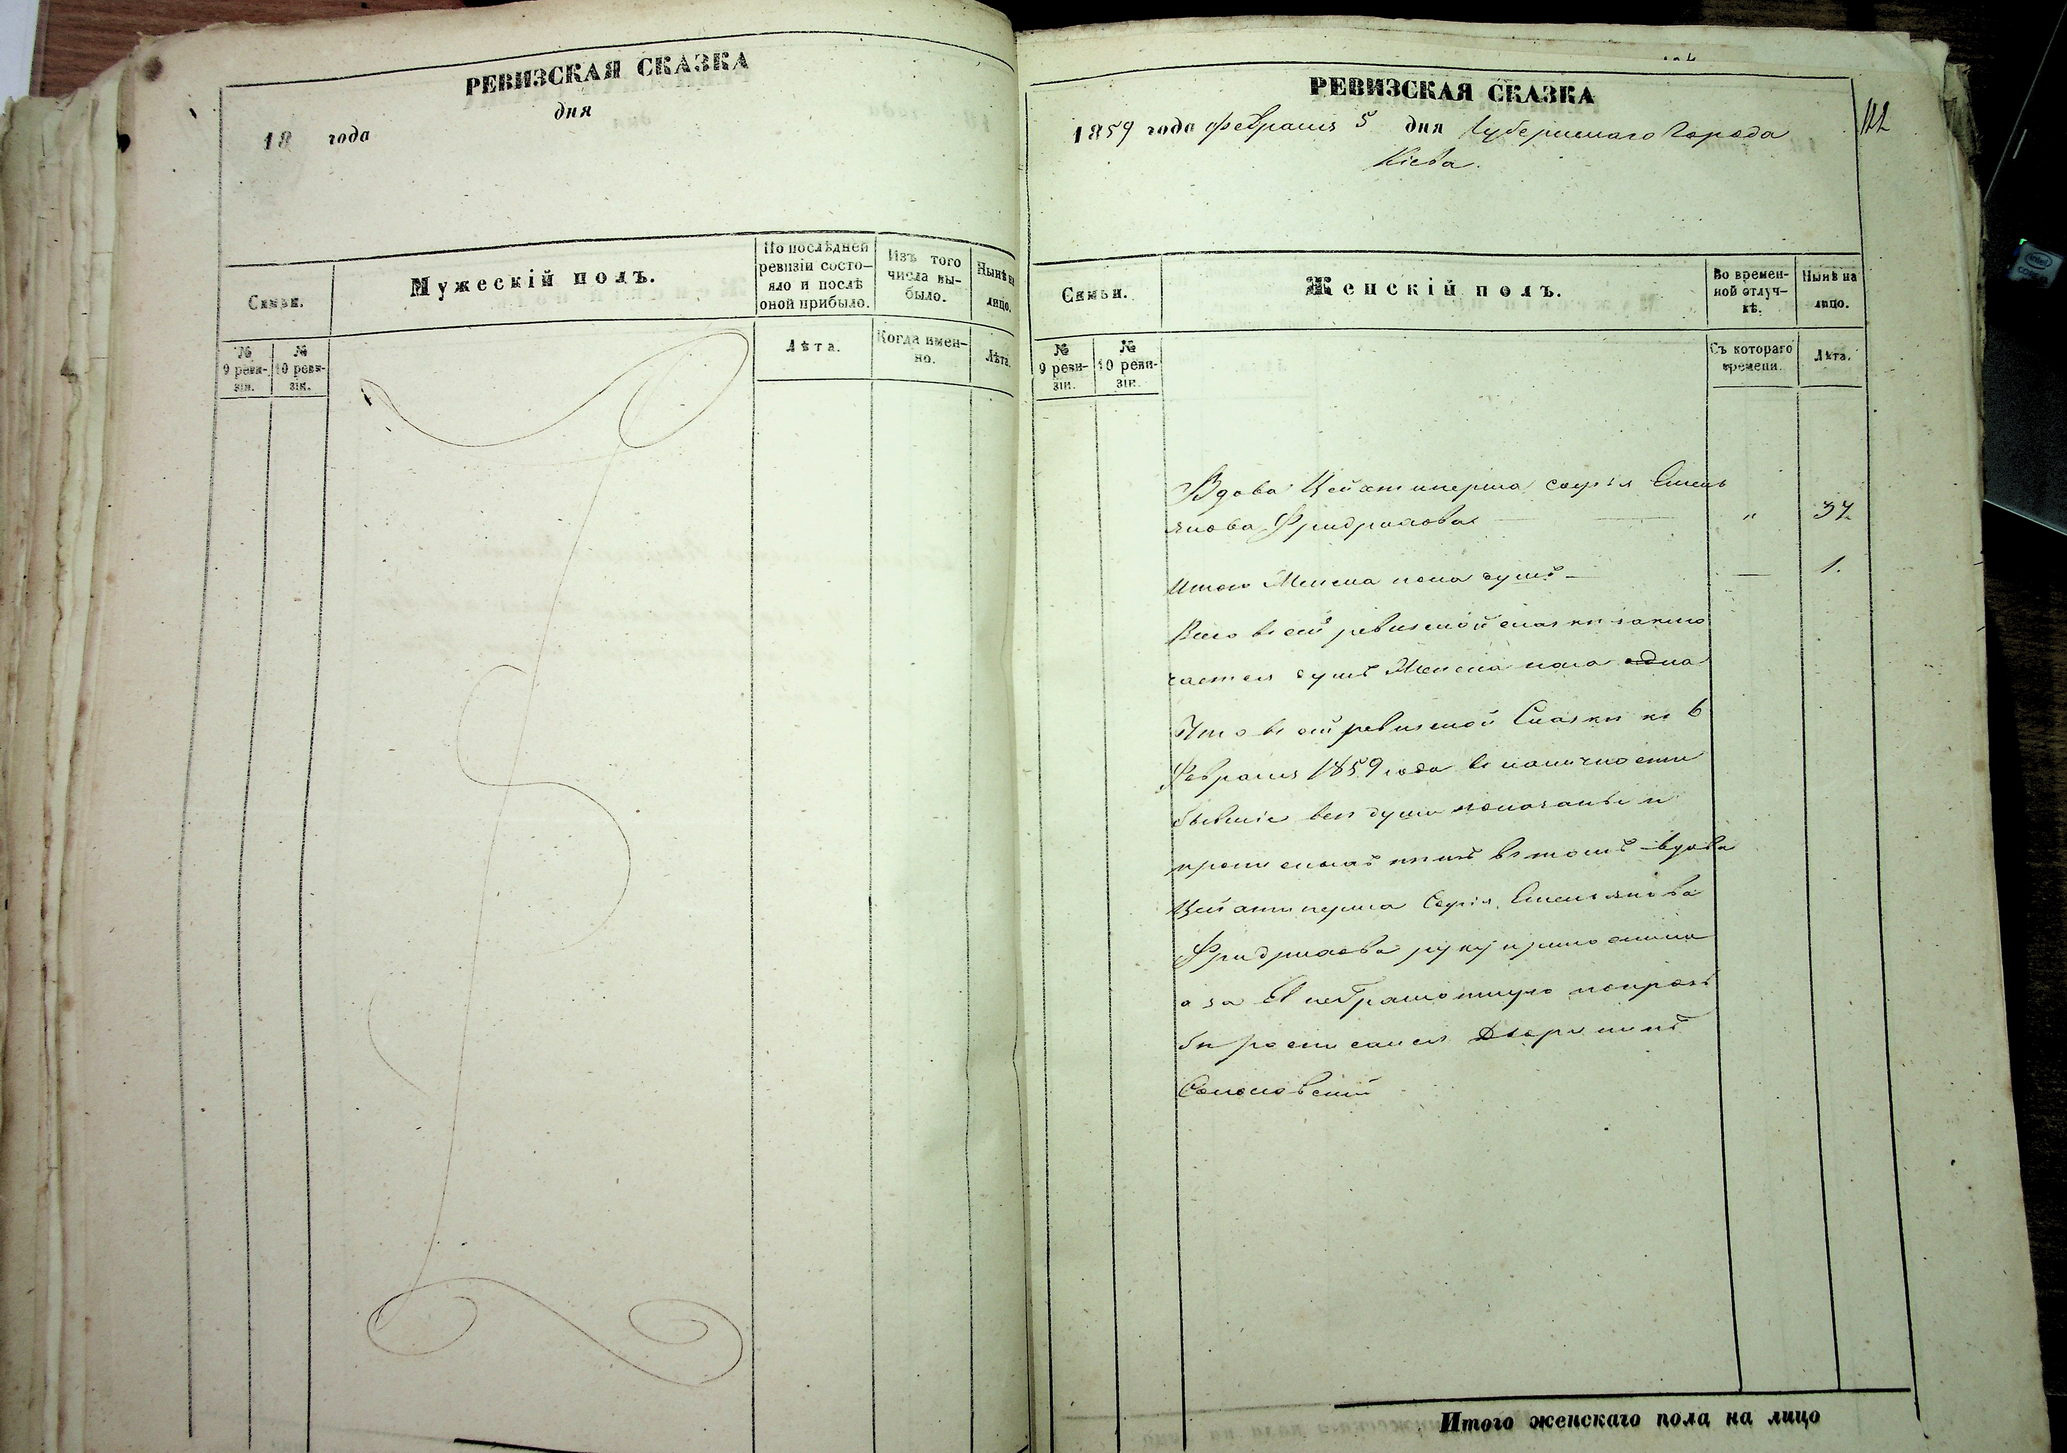 РЕВИЗСКАЯ СКАЗКА
дня
18 года
Семьи.
Мужескій полъ.
По послѣдней ревизіи состо-
яло и послѣ оной прибыло.
Изъ того числа вы-
было.
Нынѣ на лицо.
№ 9 реви-
зіи.
№ 10 реви-
зіи.
Лѣта.
Когда имен-
но.
Лѣта.
РЕВИЗСКАЯ СКАЗКА
1859 года Февраля 5 дня Губернскаго Города
Кіева.
122
Семьи.
Женскій полъ.
Во времен-
ной отлуч-
кѣ.
Нынѣ на лицо.
№ 9 реви-
зіи.
№ 10 реви-
зіи.
Съ котораго времени.
Лѣта.
Вдова Цейхтинерша Софія Емель
янова Фридрихова — „ 37.
Итого Женска пола душъ — — 1.
Всего въ сей ревизской сказки заклю
чается душъ Женска пола одна
Что въ сей ревизской Сказки по 6
Февраля 1859 года въ наличности
бывшіе всѣ души показаны и
прописныхъ нѣтъ въ томъ вдова
Софія Емельянова
Фридрихова руку приложила
а за Ея неграмотную по прозь
бѣ росписался Дворянинъ
Итого женскаго пола на лицо